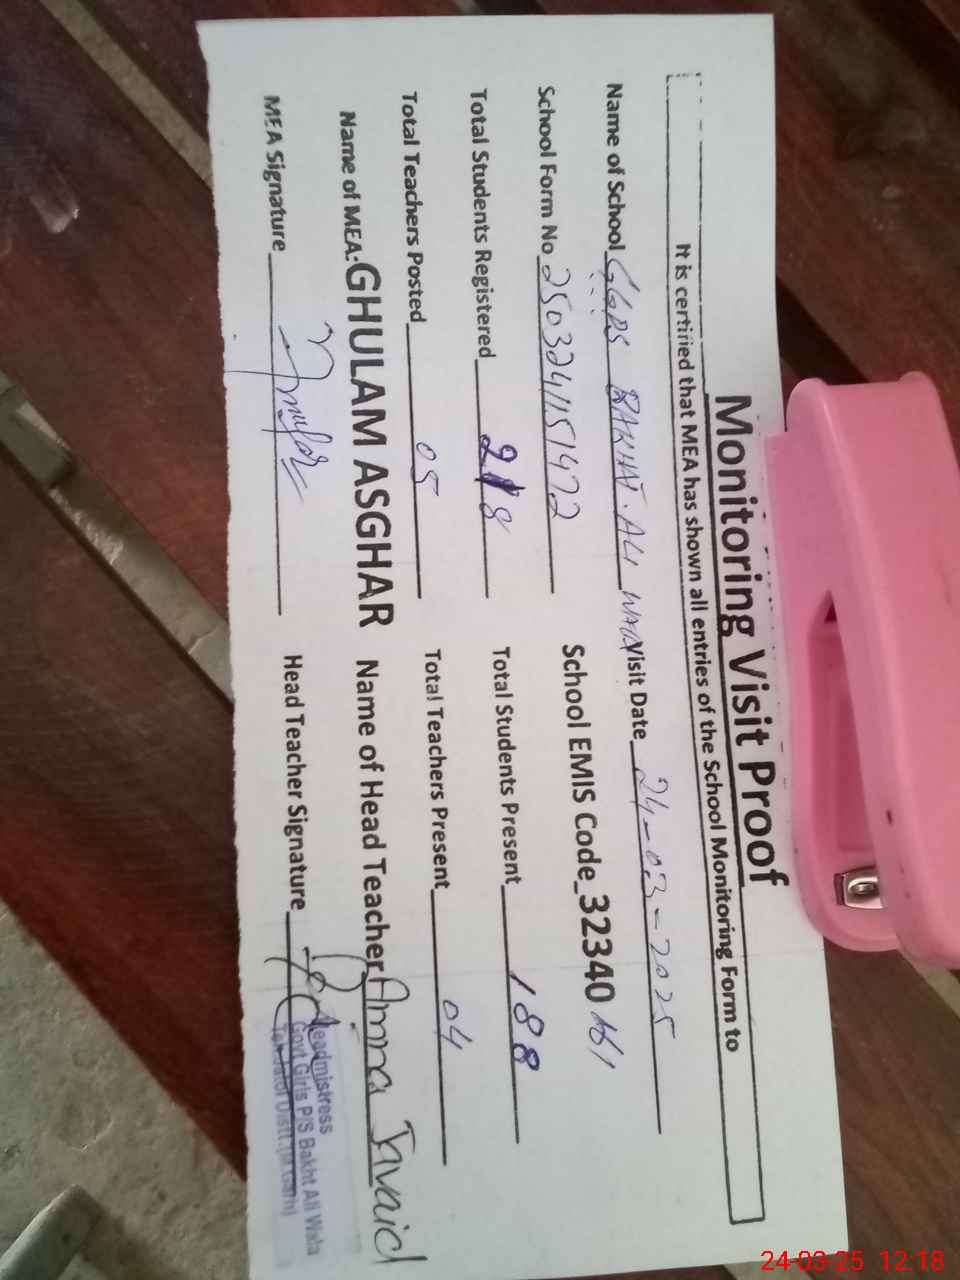 Monitoring Visit Proof
It is certified that MEA has shown all entries of the School Monitoring Form to
Name of School GGPS BAKHAT ALI WALA Visit Date 24-03-2025
School Form No 2503241151472 School EMIS Code_32340161
Total Students Registered 218 Total Students Present 188
Total Teachers Posted 05 Total Teachers Present 04
Name of MEA: GHULAM ASGHAR Name of Head Teacher Amna Javaid
MEA Signature Head Teacher Signature
Headmistress
Govt Girls P/S Bakht Ali Wala
24-03-25 12:18